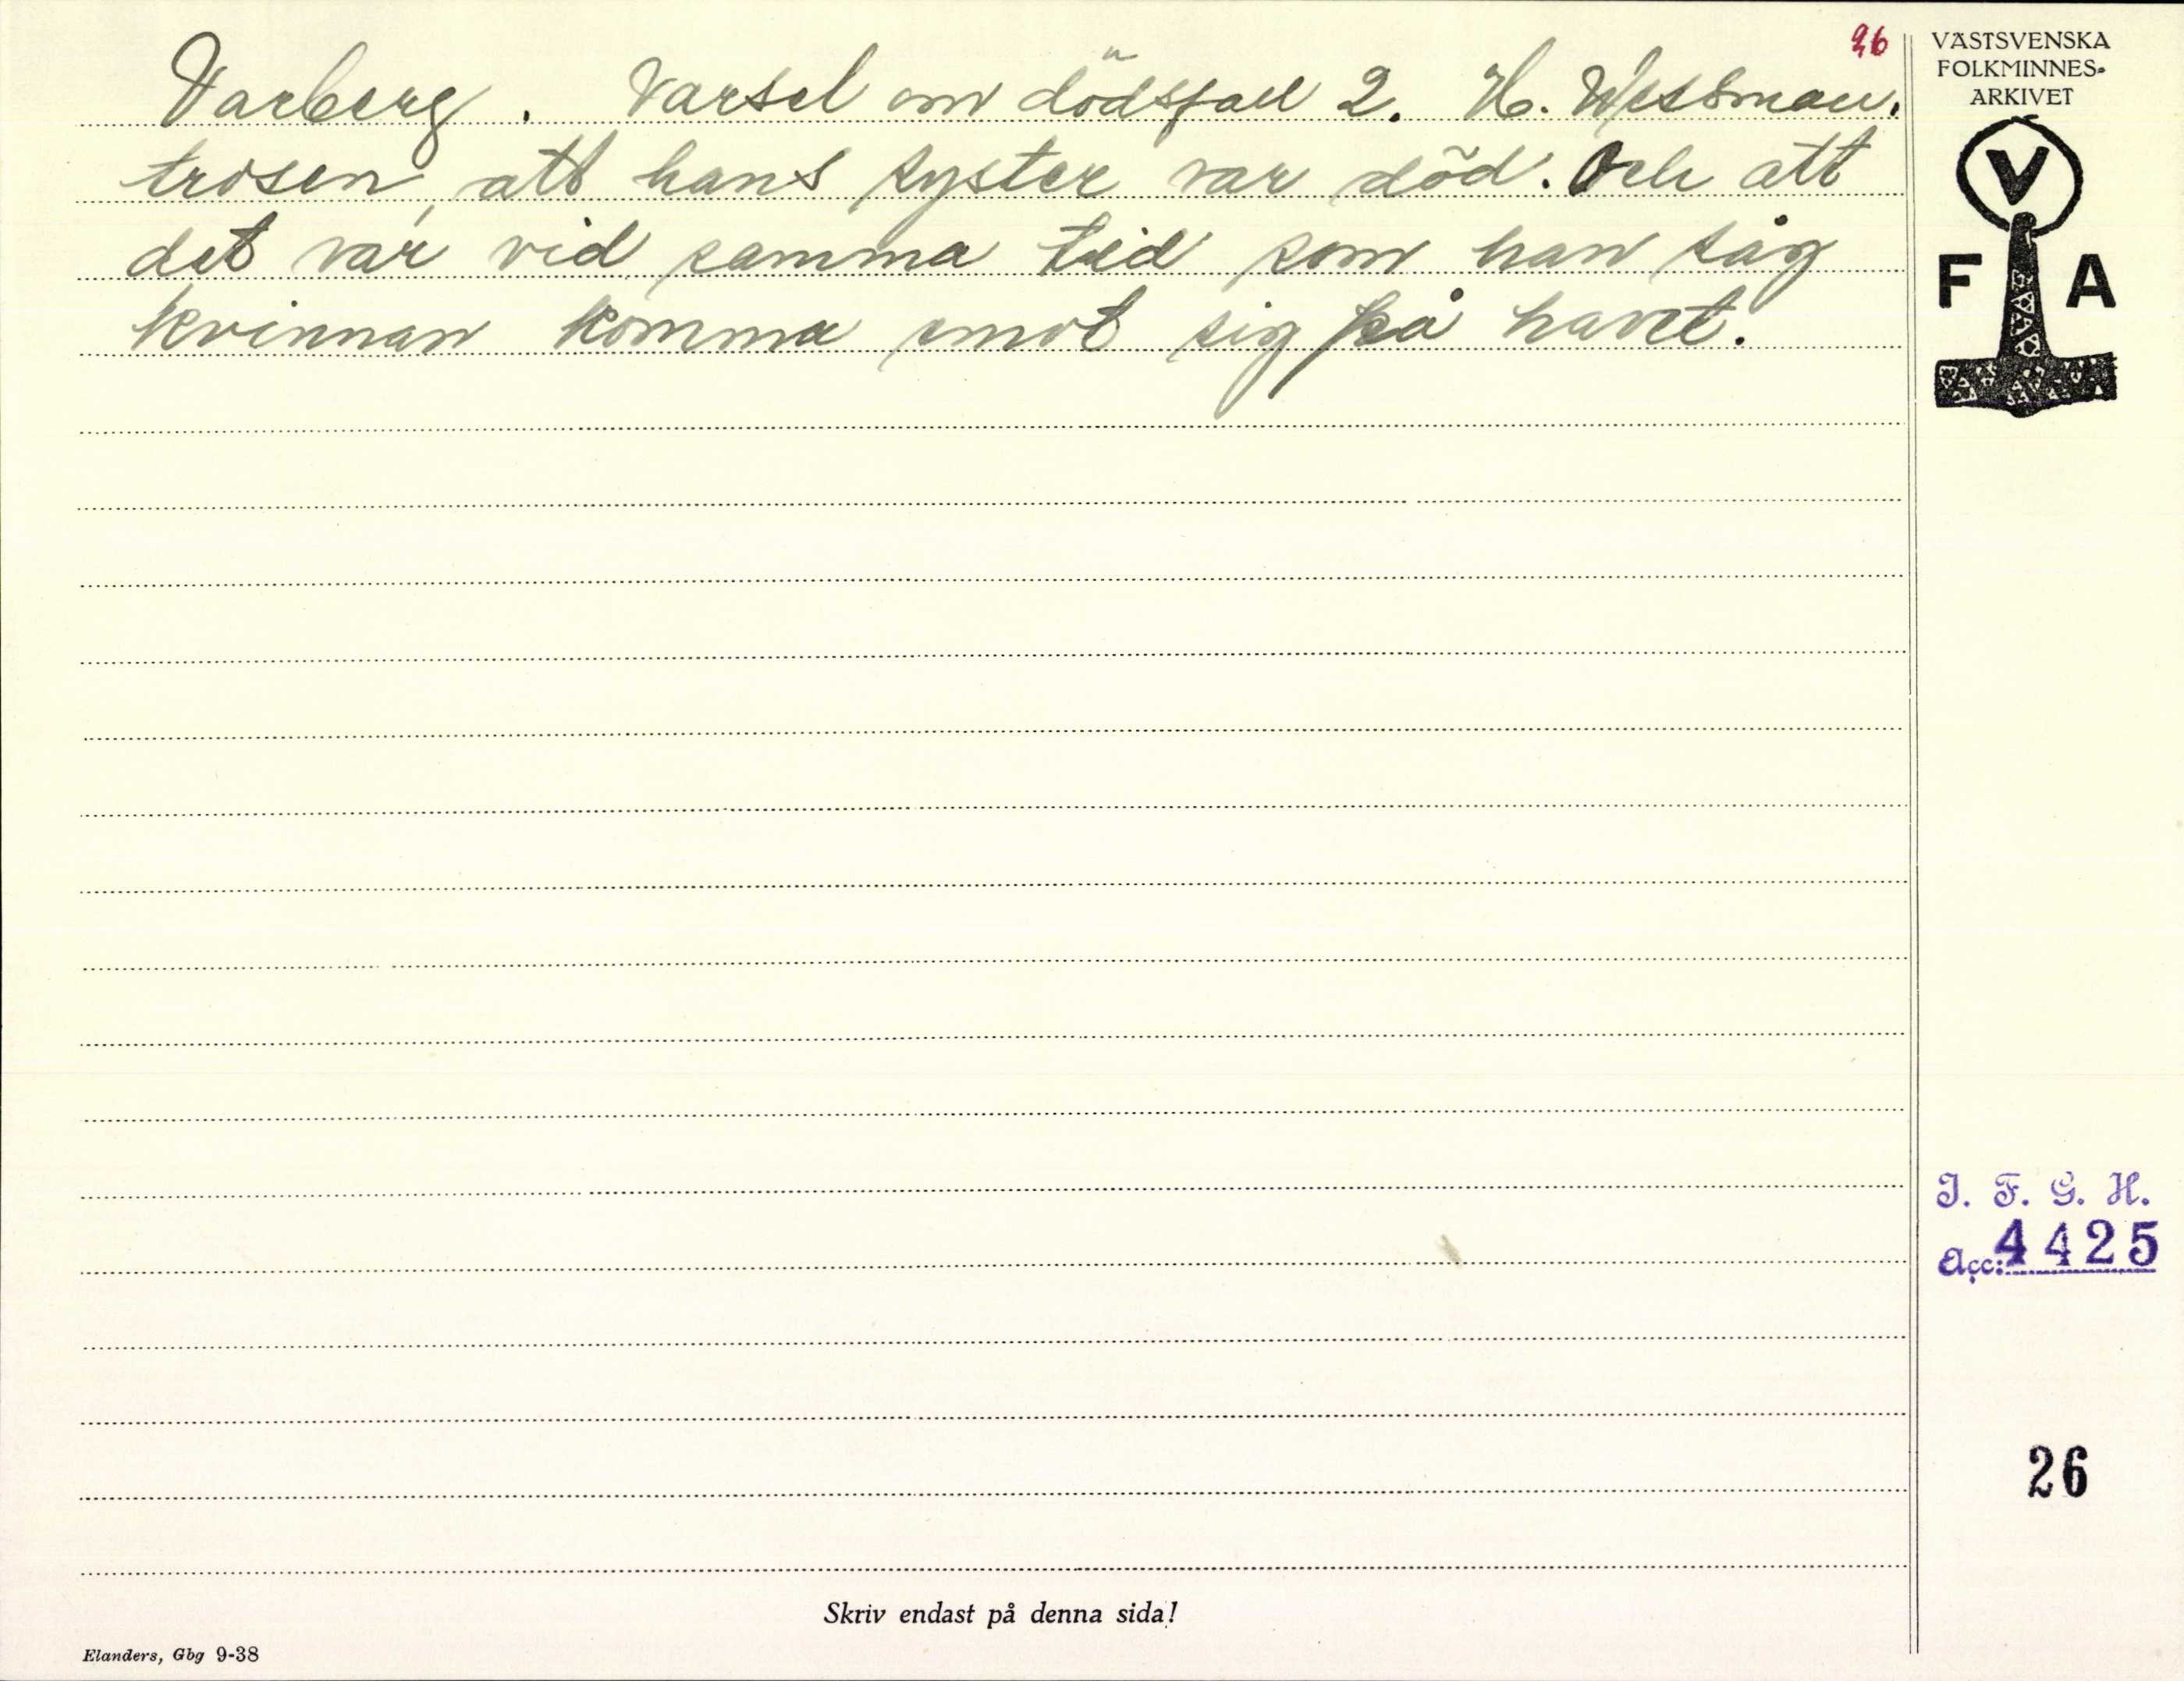 26
Varberg. Varsel om dödsfall 2. H. Wessman.
trosen, att hans syster var död. Och att
det var vid samma tid som han såg
kvinnan komma emot sig på havet.
VÄSTSVENSKA
FOLKMINNES-
ARKIVET
V
F A
I. F. G. H.
Acc: 4425
26
Skriv endast på denna sida!
Elanders, Gbg 9-38